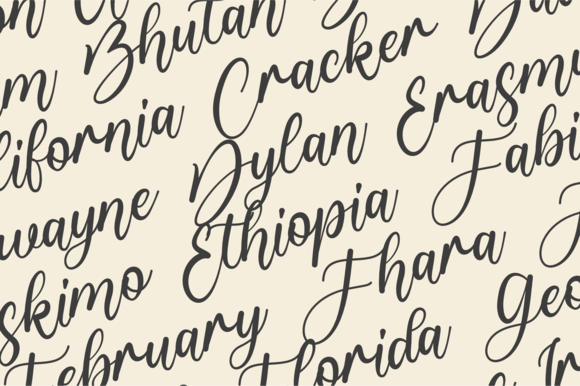 on
m Bhutan
lifornia Cracker
wayne Dylan Erasmu
skimo Ethiopia Fabi
February Fhara
Florida Geo
Ir